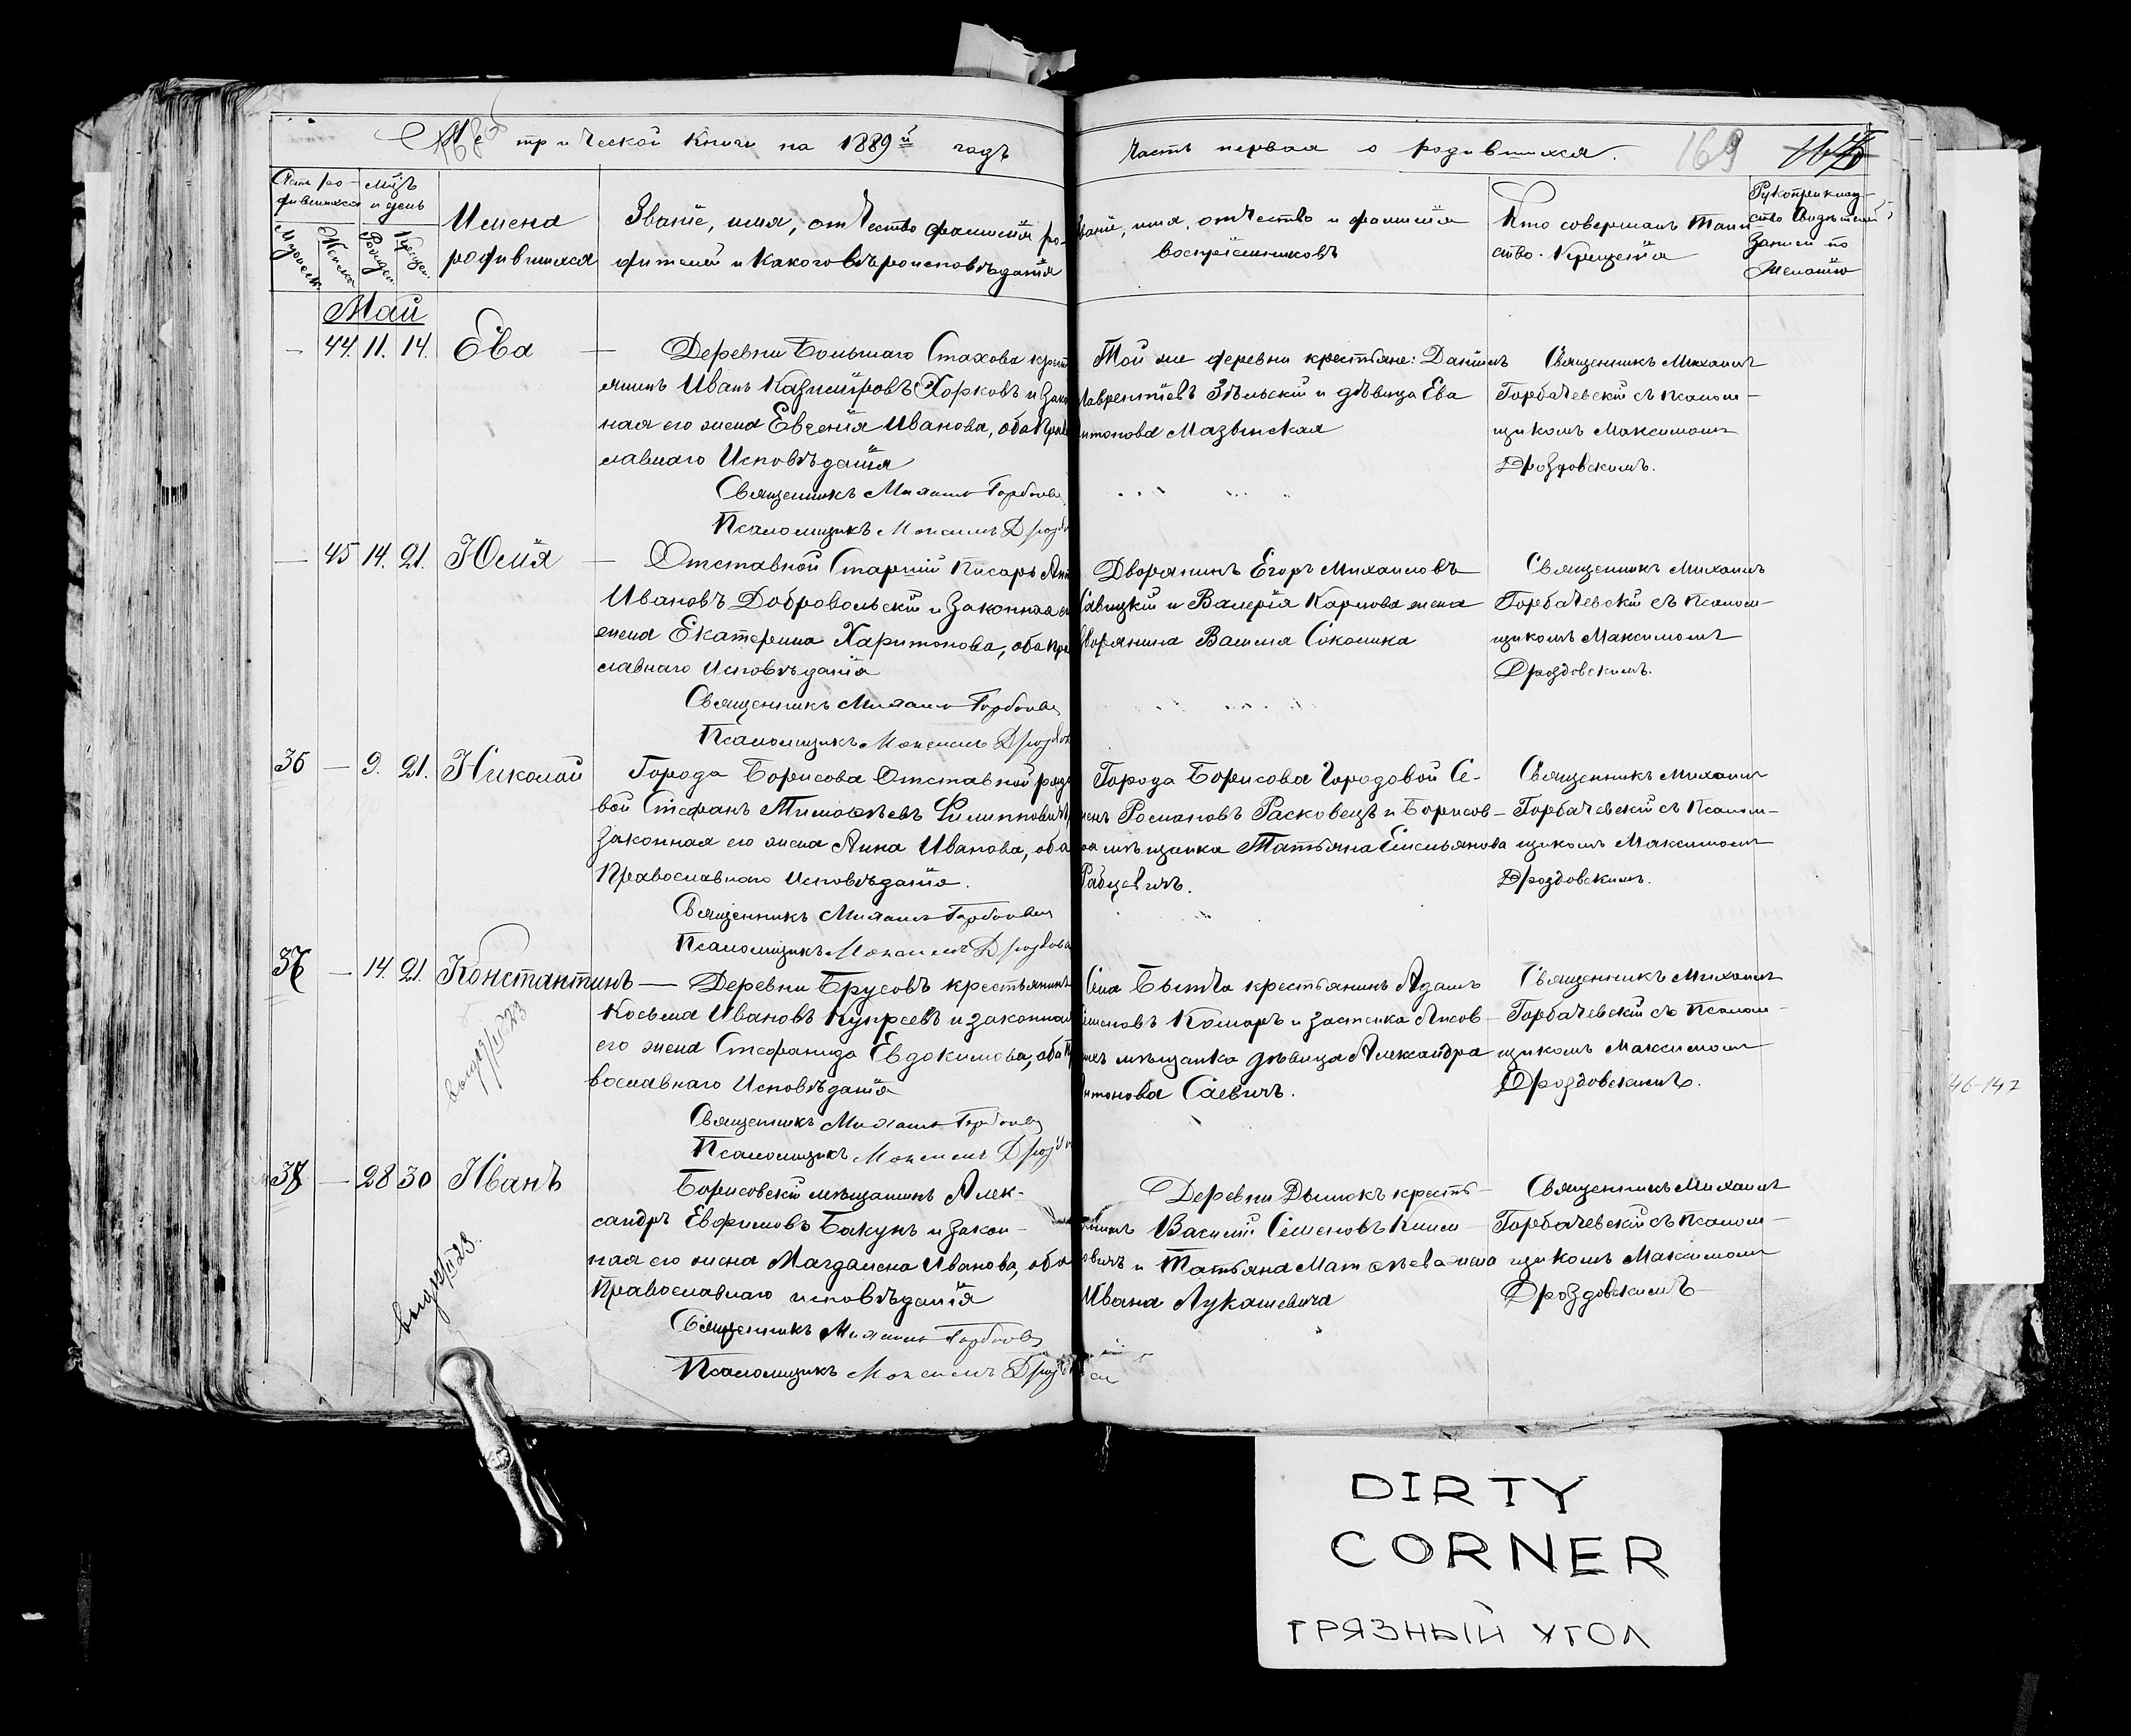 Метрической книги на 1889й годъ
Часть первая о родившихся.
169
Имена
родившихся
Званіе, имя, отчество фамилія ро-
дителей и какого вѣроисповѣданія
Званіе, имя, отчество и фамилія
воспріемниковъ
Кто совершалъ Таин-
ство Крещенія
Рукоприклад-
ство свидѣтелей
записи по
желанію
Май
— 44. 11. 14. Ева —
Деревни Большаго Стахова крест
янинъ Иванъ Казиміровъ Хорковъ и зако
ная его жена Евгенія Иванова, оба Право
славнаго Исповѣданія
Священникъ Михаилъ Горбачев
Псаломщикъ Максимъ Дроздо
Той же деревни крестьяне: Даніилъ
Лаврентіевъ Зѣльскій и дѣвица Ева
Антонова Мазынская
Священникъ Михаилъ
Горбачевскій съ псалом-
щикомъ Максимомъ
Дроздовскимъ.
— 45 14. 21. Юлія —
Отставной Старшій писарь Ант
Ивановъ Добровольскій и законная ег
жена Екатерина Харитонова, оба Пра
славнаго Исповѣданія
Священникъ Михаилъ Горбачев
Псаломщикъ Максимъ Дроздов
Дворянинъ Егоръ Михаиловъ
Савицкій и Валерія Карлова жена
дворянина Василія Соколика
Священникъ Михаилъ
Горбачевскій съ псалом-
щикомъ Максимомъ
Дроздовскимъ.
36 — 9. 21. Николай
Города Борисова Отставной рядо
вой Стефанъ Тимоѳѣевъ Филипповичъ,
законная его жена Анна Иванова, оба
Православнаго Исповѣданія.
Священникъ Михаилъ Горбачевс
Псаломщикъ Максимъ Дроздовс
Города Борисова Городовой Се-
менъ Романовъ Расковецъ и Борисов-
ская мѣщанка Татьяна Емельянова
Рабцевичъ.
Священникъ Михаилъ
Горбачевскій съ псалом-
щикомъ Максимомъ
Дроздовскимъ.
37 — 14. 21. Константинъ —
Деревни Брусовъ крестьянинъ
Косьма Ивановъ Купреевъ и законная
его жена Стефанида Евдокимова, оба Пра
вославнаго Исповѣданія
Священникъ Михаилъ Горбачев
Псаломщикъ Максимъ Дроздо
Села Бытча крестьянинъ Адамъ
Семеновъ Комаръ и застенка Лисов-
мѣщанка дѣвица Александра
Антонова Саевичъ.
Священникъ Михаилъ
Горбачевскій съ псалом-
щикомъ Максимомъ
Дроздовскимъ.
46-147
38 — 28 30 Иванъ
Борисовскій мѣщанинъ Алек-
сандръ Евфимовъ Бакунъ и закон-
ная его жена Магдалена Иванова, оба
Православнаго исповѣданія
Священникъ Михаилъ Горбачев
Псаломщикъ Максимъ Дроздовски
Деревни Дымокъ кресть-
янинъ Василій Семеновъ Клим-
овичъ и Татьяна Матѳѣева жена
Ивана Лукашевича
Священникъ Михаилъ
Горбачевскій съ псалом-
щикомъ Максимомъ
Дроздовскимъ
DIRTY
CORNER
ГРЯЗНЫЙ УГОЛ